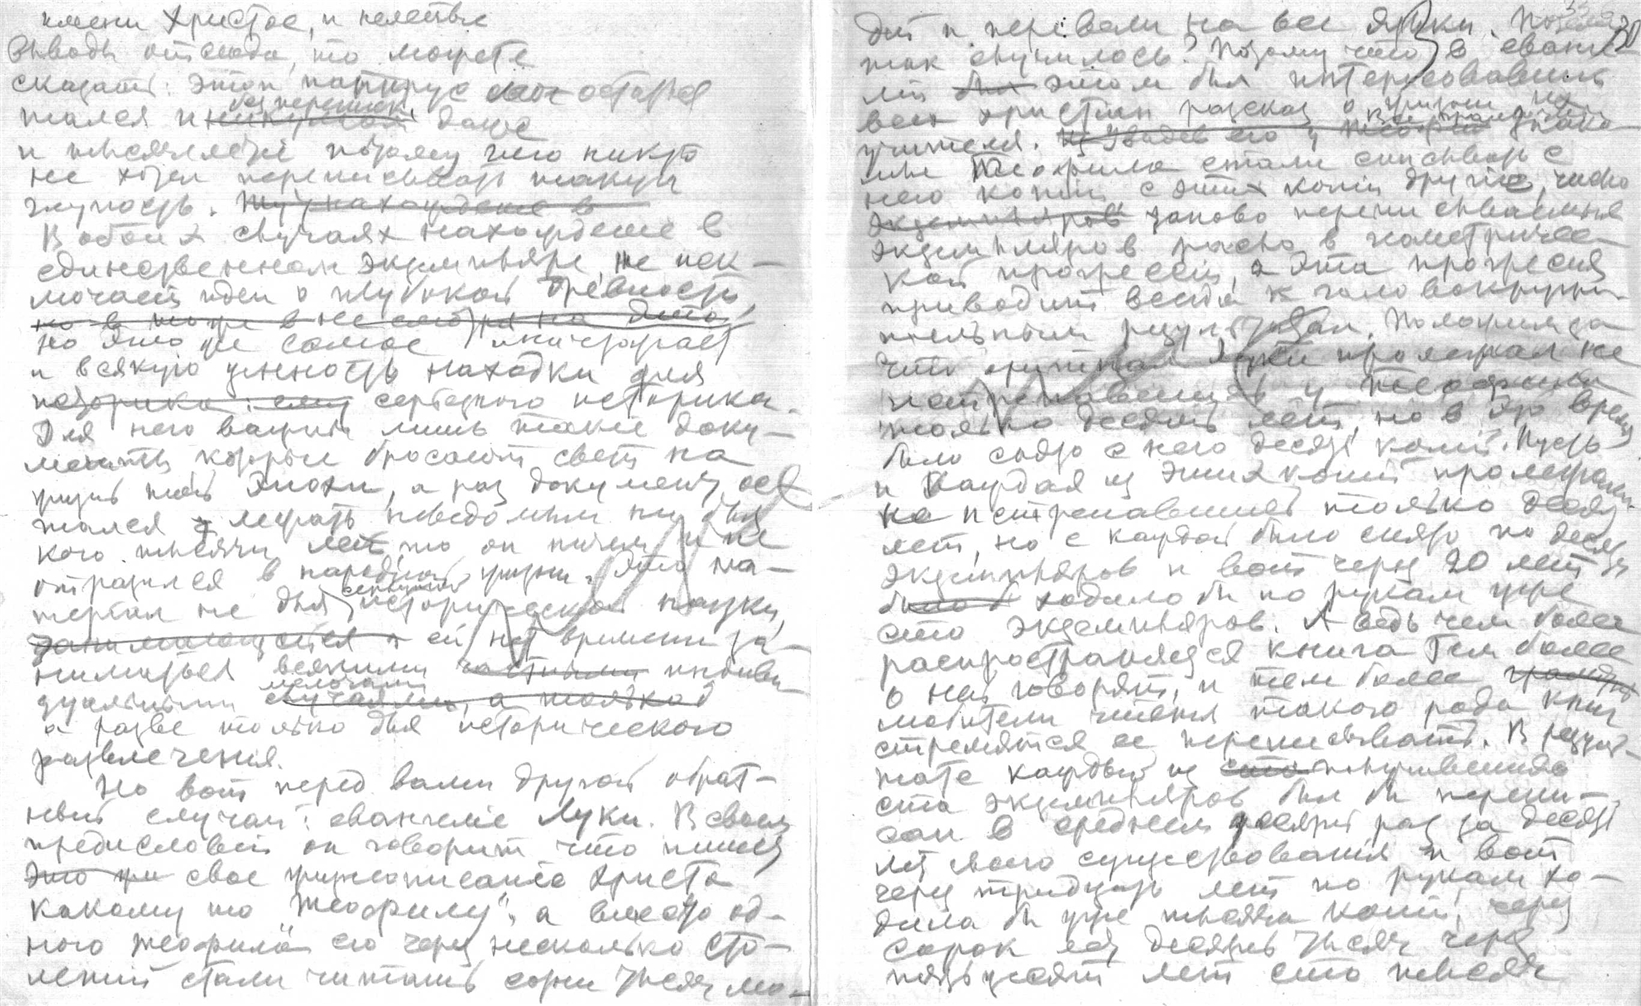 имени Христос, и нелепые
выводы отсюда, что можете
сказать: этот папирус остав
тался и без переписки даже
и тысячелетие потому что никто
не хотел переписывать такую
глупость.
В обоих случаях нахождение в
единственном экземпляре, не иск-
лючает идеи о глубокой древности,
но в то же в не смотря на это
но это же самое уничтожает
и всякую ценность находки для
историка: ему серьезного историка.
Для него важны лишь такие доку-
менты, которые бросают свет на
жизнь той эпохи, а раз документ ос-
тался лежать неведомым ни для
кого тысячи лет, то он ничем и не
отразился в народной жизни. Это ма-
териал не для серьезной исторической науки,
занимающейся ей нет времени за-
ниматься всякими частными индиви-
дуальными мелочами случаями, а только
а разве только для исторического
развлечения.
Но вот перед вами другой обрат-
ный случай: евангелие Луки. В своем
предисловии он говорит что пишет
это же свое жизнеописание Христа
какому то „Теофилу", а вместо од-
ного Теофила его через несколько сто-
летий стали читать сотни тысяч лю-
дей и перевели на все языки. Почему
так случилось? Потому что в еванге
лии был этом был интересовавший
всех христиан рассказ о жизни их
учителя. Увидев его у Теофила знако
мые Теофила стали списывать с
него копии, с этих копий другие, число
экземпляров заново переписываемых
экземпляров росло в геометричес-
кой прогрессии, а эта прогрессия
приводит всегда к головокружи-
тельным результатам. Положим за
что оригинал Луки пролежал не
истрепавшись у Теофила
только десять лет, но в это время
было снято с него десять копий. Пусть
и каждая из этих копий пролежала
не истрепавшись только десять
лет, но с каждой было снято по десять
экземпляров и вот через 20 лет
было б ходило бы по рукам уже
сто экземпляров. А ведь чем более
распространяется книга тем более
о ней говорят, и тем более
любители чтения такого рода книг
стремятся ее переписывать. В резуль-
тате каждый из ста получившихся
ста экземпляров был бы перепи-
сан в среднем десять раз за десять
лет своего существования и вот
через тридцать лет по рукам хо-
дила бы уже тысяча копий, через
сорок лет десять тысяч через
пятьдесят лет сто тысяч